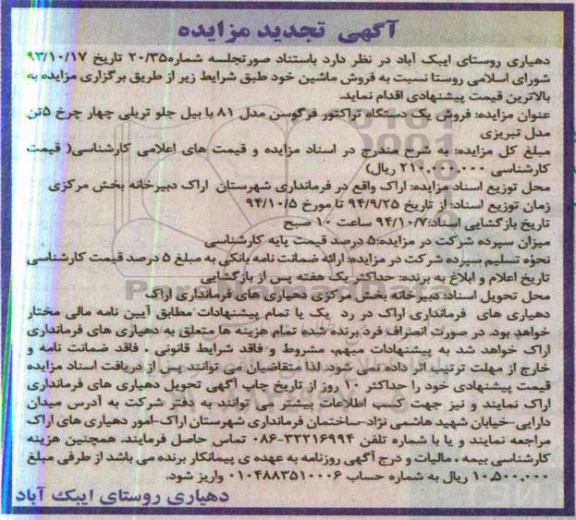 آگهی تجدید مزایده
دهیاری روستای ایبک آباد در نظر دارد باستناد صورتجلسه شماره۲۰/۳۵ تاریخ ۹۳/۱۰/۱۷
شورای اسلامی روستا نسبت به فروش ماشین خود طبق شرایط زیر از طریق برگزاری مزایده به
بالاترین قیمت پیشنهادی اقدام نماید.
عنوان مزایده: فروش یک دستگاه تراکتور فرگوسن مدل ۸۱ با بیل جلو تریلی چهار چرخ ۵تن
مدل تبریزی
مبلغ کل مزایده: به شرح مندرج در اسناد مزایده و قیمت های اعلامی کارشناسی( قیمت
کارشناسی ۲۱۰.۰۰۰.۰۰۰ ریال)
محل توزیع اسناد مزایده: اراک واقع در فرمانداری شهرستان اراک دبیرخانه بخش مرکزی
زمان توزیع اسناد: از تاریخ ۹۴/۹/۲۵ تا مورخ ۹۴/۱۰/۵
تاریخ بازگشایی اسناد:۹۴/۱۰/۷ ساعت ۱۰ صبح
میزان سپرده شرکت در مزایده:۵ درصد قیمت پایه کارشناسی
نحوه تسلیم سپرده شرکت در مزایده: ارائه ضمانت نامه بانکی به مبلغ ۵ درصد قیمت کارشناسی
تاریخ اعلام و ابلاغ به برنده: حداکثر یک هفته پس از بازگشایی
محل تحویل اسناد: دبیرخانه بخش مرکزی دهیاری های فرمانداری اراک
دهیاری های فرمانداری اراک در رد یک یا تمام پیشنهادات مطابق آیین نامه مالی مختار
خواهد بود. در صورت انصراف فرد برنده شده تمام هزینه ها متعلق به دهیاری های فرمانداری
اراک خواهد شد به پیشنهادات مبهم، مشروط و فاقد شرایط قانونی ، فاقد ضمانت نامه و
خارج از مهلت ترتیب اثر داده نمی شود. لذا متقاضیان می توانند پس از دریافت اسناد مزایده
قیمت پیشنهادی خود را حداکثر ۱۰ روز از تاریخ چاپ آگهی تحویل دهیاری های فرمانداری
اراک نمایند و نیز جهت کسب اطلاعات بیشتر می توانند به دفتر شرکت به آدرس میدان
دارایی-خیابان شهید هاشمی نژاد-ساختمان فرمانداری شهرستان اراک-امور دهیاری های اراک
مراجعه نمایند و یا با شماره تلفن ۳۲۲۱۶۹۹۴-۰۸۶ تماس حاصل فرمایند. همچنین هزینه
کارشناسی بیمه ، مالیات و درج آگهی روزنامه به عهده ی پیمانکار برنده می باشد از طرفی مبلغ
۱۰.۵۰۰.۰۰۰ ریال به شماره حساب ۰۱۰۴۸۸۳۵۱۰۰۰۶ واریز شود.
دهیاری روستای ایبک آباد